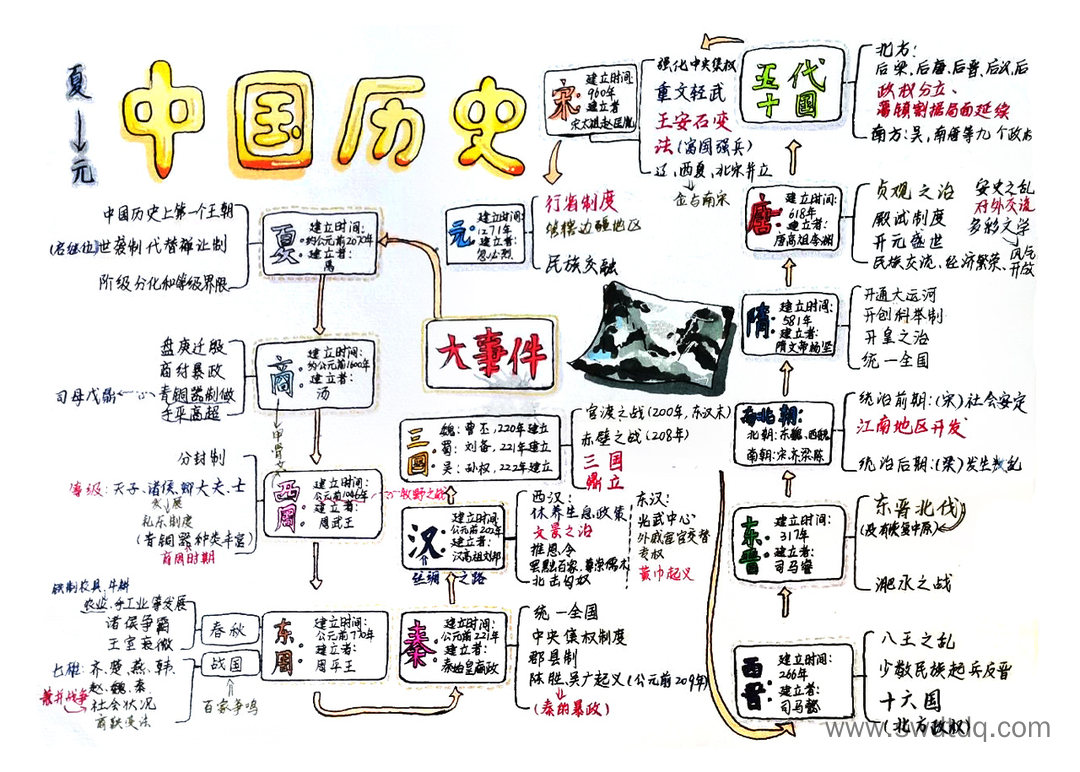 夏
→元
中国历史
大事件
夏
建立时间:
约公元前2070年
建立者:
禹
中国历史上第一个王朝
世袭制代替禅让制
阶级分化和等级界限
商
建立时间:
约公元前1600年
建立者:
汤
盘庚迁殷
商纣暴政
青铜器制做
工平高超
司母戊鼎
甲骨文
西周
建立时间:
公元前1046年
建立者:
周武王
牧野之战
分封制
等级:天子、诸侯、卿大夫、士
发展
礼乐制度
(青铜器种类丰富)
商周时期
东周
建立时间:
公元前770年
建立者:
周平王
春秋
铁制农具、牛耕
农业、手工业等发展
诸侯争霸
王室衰微
战国
七雄:齐、楚、燕、韩、
赵、魏、秦
兼并战争
社会状况
商鞅变法
百家争鸣
秦
建立时间:
公元前221年
建立者:
秦始皇嬴政
统一全国
中央集权制度
郡县制
陈胜、吴广起义(公元前209年)
(秦的暴政)
汉
建立时间:
公元前202年
建立者:
汉高祖刘邦
丝绸之路
西汉:
休养生息政策
文景之治
推恩令
罢黜百家、尊崇儒术
北击匈奴
东汉:
光武中心
外戚宦官交替
专权
黄巾起义
三国
魏:曹丕,220年建立
蜀:刘备,221年建立
吴:孙权,222年建立
官渡之战(200年,东汉末)
赤壁之战(208年)
三国
鼎立
西晋
建立时间:
266年
建立者:
司马懿
八王之乱
少数民族起兵反晋
十六国
(北方政权)
东晋
建立时间:
317年
建立者:
司马睿
东晋北伐
(没有恢复中原)
淝水之战
南北朝:
北朝:东魏、西魏
南朝:宋、齐、梁、陈
统治前期:(宋)社会安定
江南地区开发
统治后期:(梁)发生叛乱
隋
建立时间:
581年
建立者:
隋文帝杨坚
开通大运河
开创科举制
开皇之治
统一全国
唐
建立时间:
618年
建立者:
唐高祖李渊
贞观之治
殿试制度
开元盛世
民族交流、经济繁荣、
安史之乱
对外交流
多彩文学
风气
开放
五代
十国
北方:
后梁、后唐、后晋、后汉、后
政权分立、
藩镇割据局面延续
南方:吴,南唐等九个政权
宋
建立时间:
960年
建立者
宋太祖赵匡胤
强化中央集权
重文轻武
王安石变
法(富国强兵)
辽、西夏、北宋并立
金与南宋
元
建立时间:
1271年
建立者:
忽必烈
行省制度
管辖边疆地区
民族交融
www.swdtdq.com